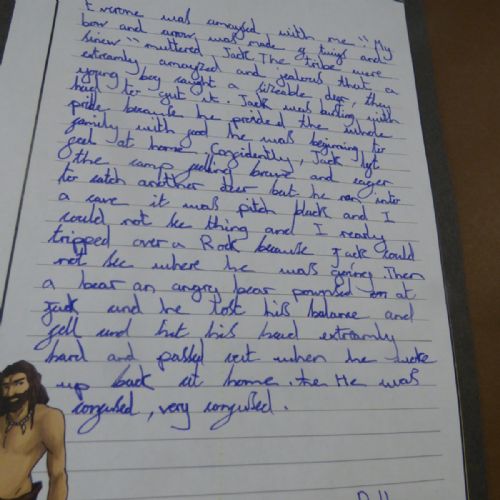 Everone was amazed with me. "My
bow and arrow was made of twigs and
sinew" muttered Jack. The tribe were
extramly amayzed and jealous that a
young boy caught a sizeable deer, they
had to gut it. Jack was bursting with
pride because he provided the whole
family with food he was beginning to
feel at home. Confidently, Jack left
the camp feeling brave and eager
to catch another deer but he ran into
a cave it was pitch black and I
could not see thing and I nearly
tripped over a Rock because Jack could
not see where he was going. Then
a bear an angry bear pounsed on at
Jack and he lost his balance and
fell and hit his head extramly
hard and passed out when he woke
up back at home. the He was
confused, very confused.